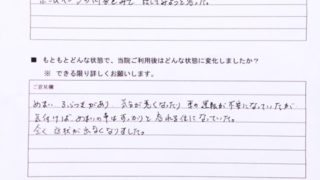 ■ もともとどんな状態で、当院ご利用後はどんな状態に変化しましたか？
※ できる限り詳しくお願いします。
ご記入欄
めまい ふらつきがあり、気分が悪くなったり 車の運転が不安になっていたが、
気付けば、めまいの事はすっかりと忘れる位になっていた。
全く症状が出なくなりました。